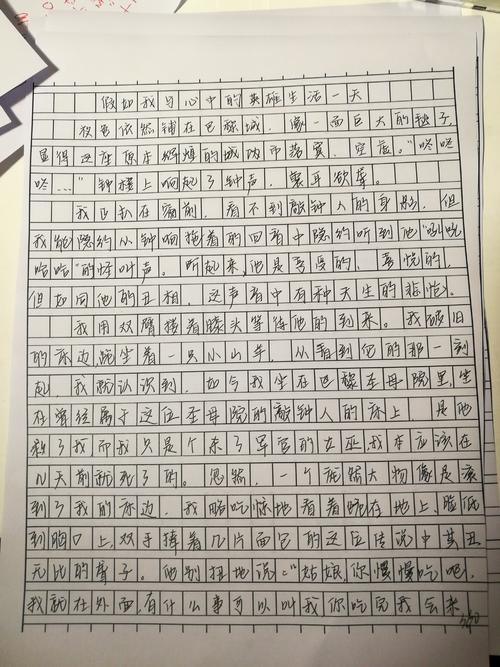 假如我与心中的英雄生活一天
夜色依然铺在巴黎城，像一面巨大的毯子，
显得这座原本辉煌的城市落寞、空虚。“咚咚
咚……”钟楼上响起了钟声，震耳欲聋。
我正趴在窗前，看不到敲钟人的身影，但
我能隐约从钟响拖着的回音中隐约听到他“
哈哈”的怪叫声。听起来，他是享受的、喜悦的，
但如同他的丑相，这声音中有种天生的悲怆。
我用双臂搂着膝头等待他的到来。我破旧
的床边，跪坐着一只小山羊，从看到它的那一刻
起，我就认识到，如今我坐在巴黎圣母院里，坐
在曾经属于这位圣母院的敲钟人的床上 是他
救了我而我只是个杀了军官的女巫，我本应该在
几天前就死了的。忽然，一个庞然大物像是滚
到了我的床边，我略吃惊地看着跪在地上，脸低
到胸口上，双手捧着几片面包的这位传说中其丑
无比的聋子。他别扭地说：“姑娘，你慢慢吃吧，
我就在外面，有什么事可以叫我你吃完我会来